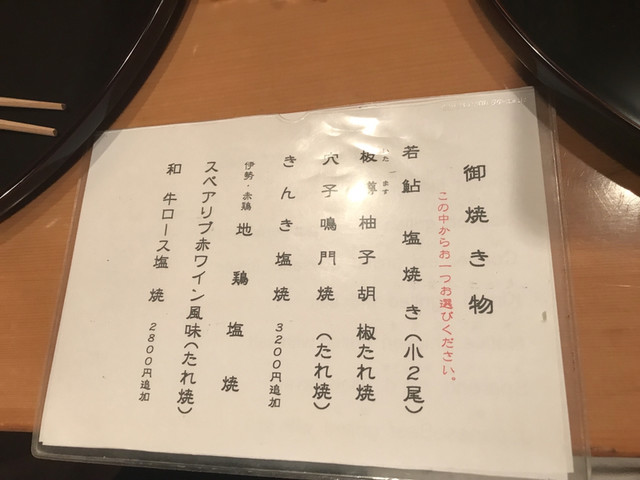 御焼き物
この中からお一つお選びください。
若鮎 塩焼き(小2尾)
板鱒柚子胡椒たれ焼
いた ます
穴子鳴門焼(たれ焼)
きんき塩焼 3200円追加
伊勢・赤鶏 地鶏塩焼
スペアリブ赤ワイン風味(たれ焼)
和牛ロース塩焼 2800円追加